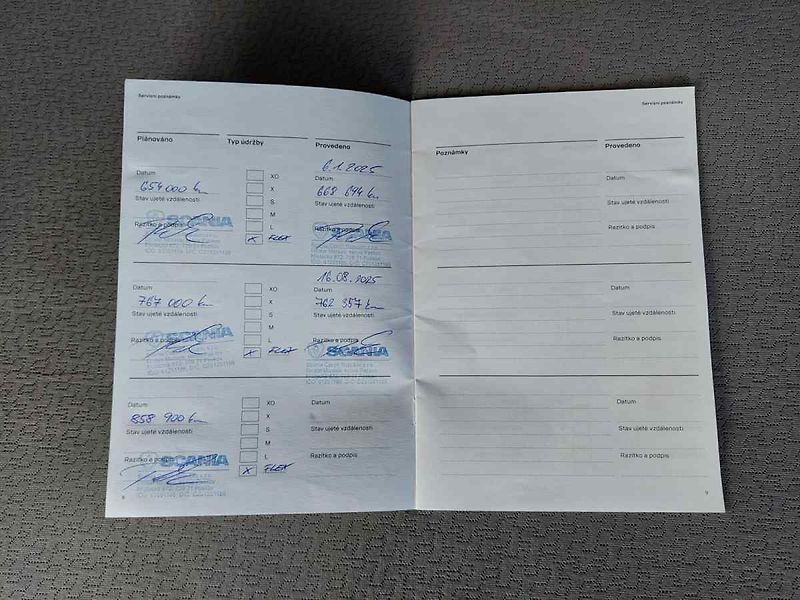 Servisní poznámky
Plánováno
Typ údržby
Provedeno
Datum
654 000 km
Stav ujeté vzdálenosti
Razítko a podpis
SCANIA
XO
X
S
M
L
X FLEX
6.1.2025
Datum
668 644 km
Stav ujeté vzdálenosti
Razítko a podpis
SCANIA
Datum
767 000 km
Stav ujeté vzdálenosti
Razítko a podpis
SCANIA
XO
X
S
M
L
X FLEX
16.08.2025
Datum
762 357 km
Stav ujeté vzdálenosti
Razítko a podpis
SCANIA
Datum
858 900 km
Stav ujeté vzdálenosti
Razítko a podpis
SCANIA
XO
X
S
M
L
X FLEX
Datum
Stav ujeté vzdálenosti
Razítko a podpis
8
Servisní poznámky
Poznámky
Provedeno
Datum
Stav ujeté vzdálenosti
Razítko a podpis
Datum
Stav ujeté vzdálenosti
Razítko a podpis
Datum
Stav ujeté vzdálenosti
Razítko a podpis
9